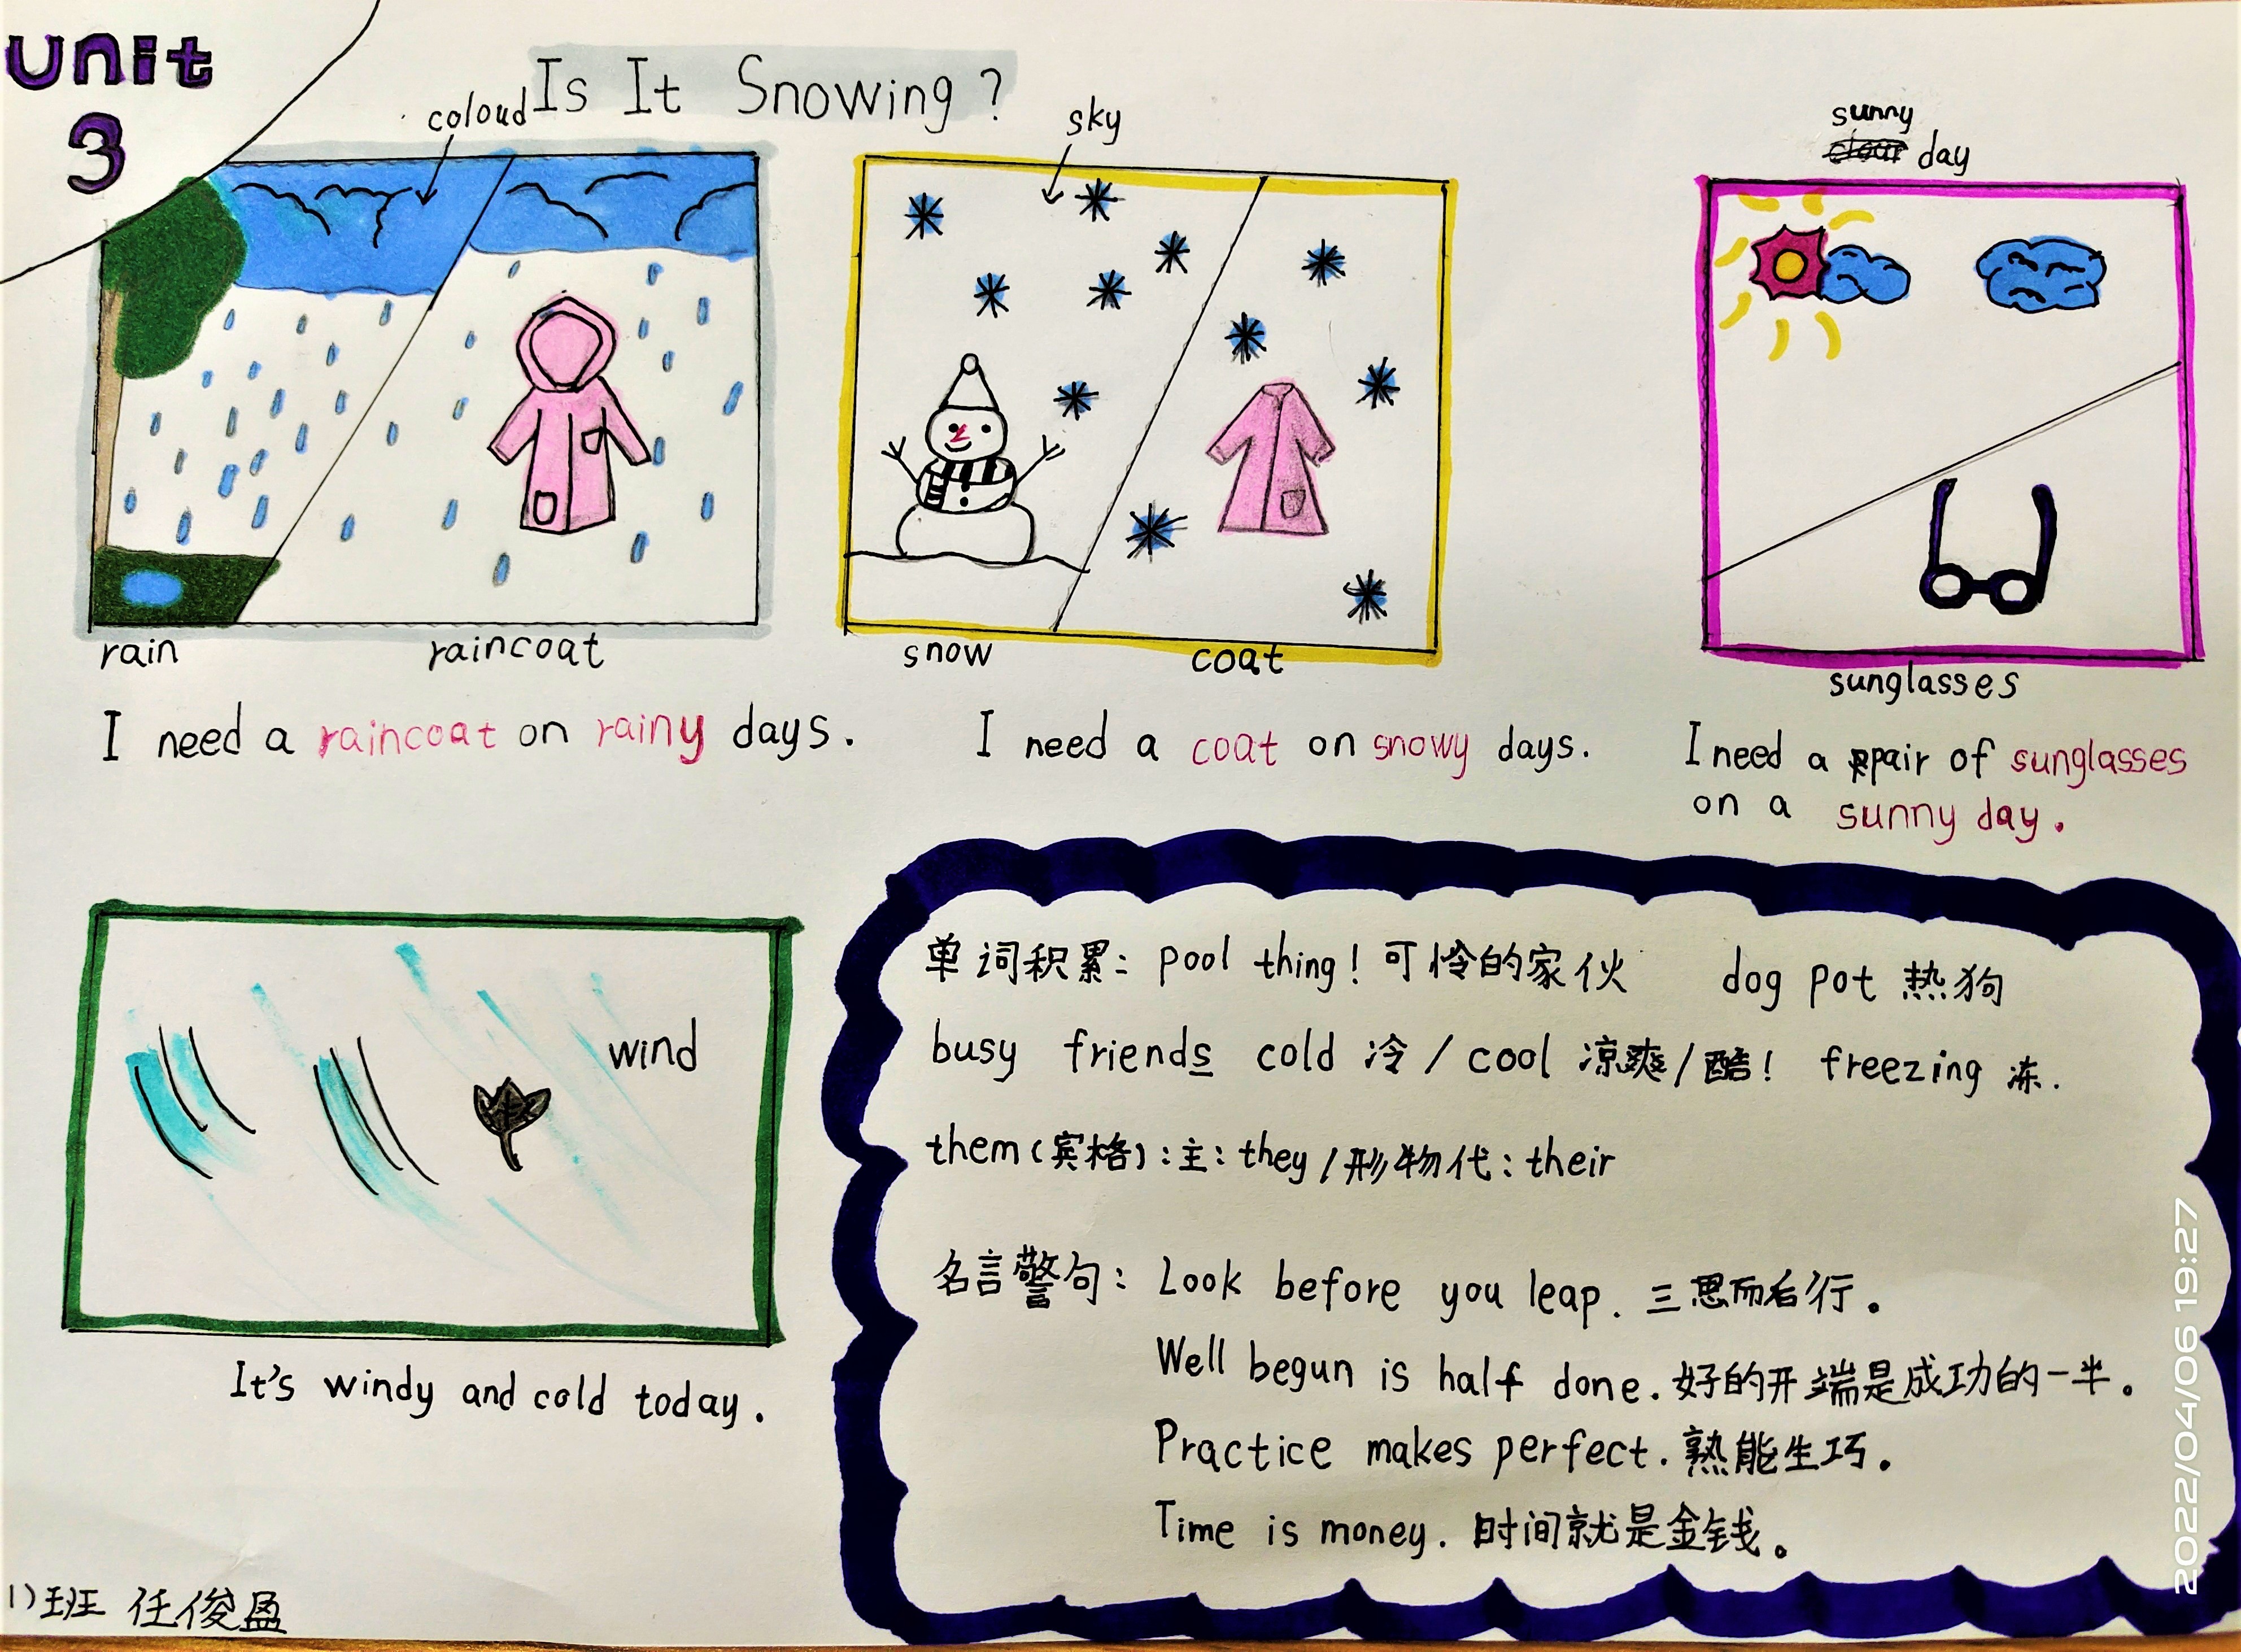 Unit
3
Is It Snowing?
coloud
sky
sunny
day
rain
raincoat
snow
coat
sunglasses
I need a raincoat on rainy days.
I need a coat on snowy days.
I need a pair of sunglasses
on a sunny day.
wind
It's windy and cold today.
单词积累: pool thing! 可怜的家伙 dog pot 热狗
busy friends cold 冷/cool 凉爽/酷! freezing 冻.
them(宾格):主: they/形物代: their
名言警句: Look before you leap. 三思而后行。
Well begun is half done. 好的开端是成功的一半。
Practice makes perfect. 熟能生巧。
Time is money. 时间就是金钱。
1)班 任俊盈
2022/04/06 19:27